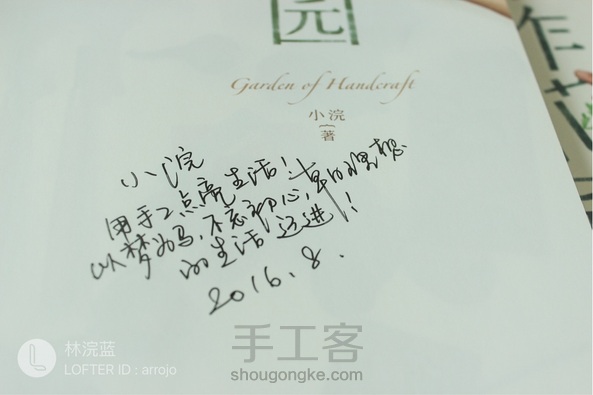 元
Garden of Handcraft
小浣
著
小浣
用手工点亮生活！
以梦为马，不忘初心，草的理想
的生活迈进！
2016.8.
作
林浣蓝
LOFTER ID : arrojo
手工客
shougongke.com